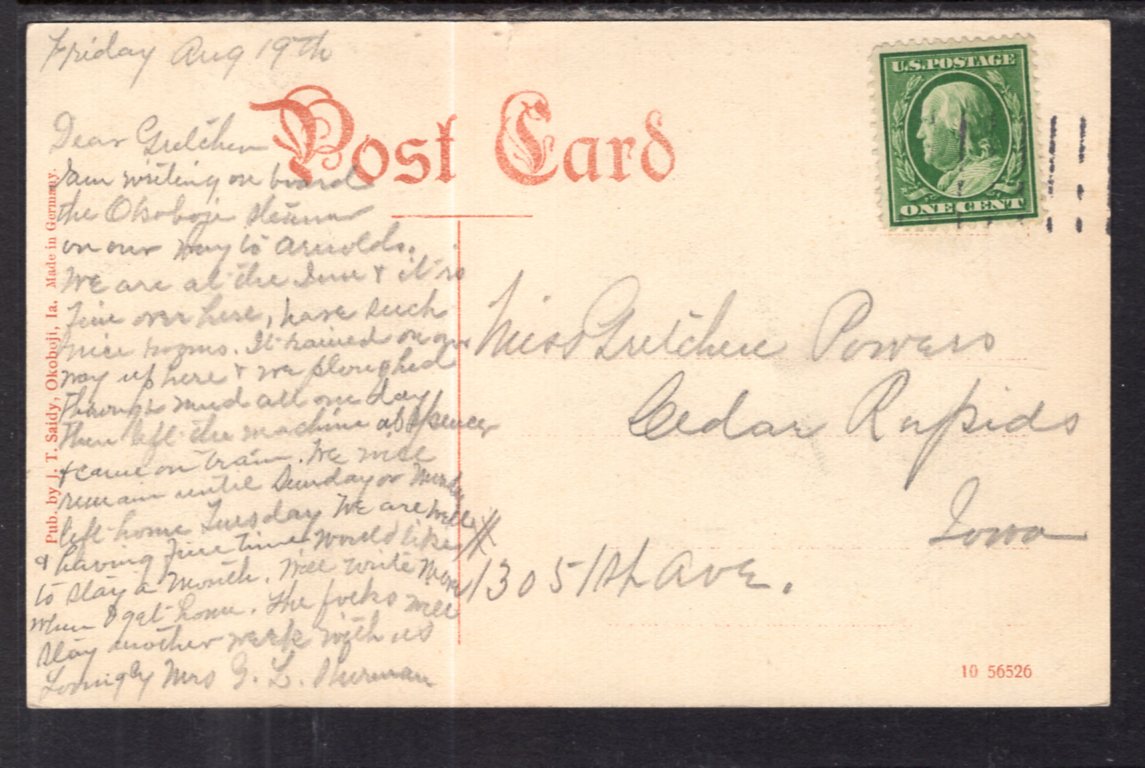 Friday Aug 19th
Post Card
U.S. POSTAGE
ONE CENT
Dear Gretchen
I am writing on board
the Okoboji Steamer
on our way to Arnolds.
We are at the Inn & it is
fine over here, have such
nice rooms. It rained on our
way up here & we ploughed
through mud all one day
then left the machine at Spencer
& came on train. We will
remain until Sunday or Monday
left home Tuesday We are well
& having fine time would like
to stay a month. Will write more
when I get home. The folks will
stay another week with us
Lovingly Mrs G. L.
Miss Gretchen Powers
Cedar Rapids
Iowa
# 1305 1st Ave.
Pub. by J. T. Saidy, Okoboji, Ia. Made in Germany.
10 56526